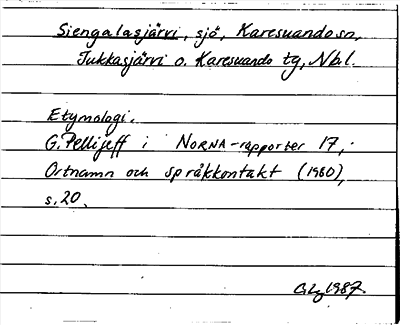 Siengalasjärvi, sjö, Karesuando sn,
Jukkasjärvi o. Karesuando tg, Nbl.
Etymologi.
G. Pellijeff i NORNA-rapporter 17,
Ortnamn och språkkontakt (1980),
s. 20.
1987.